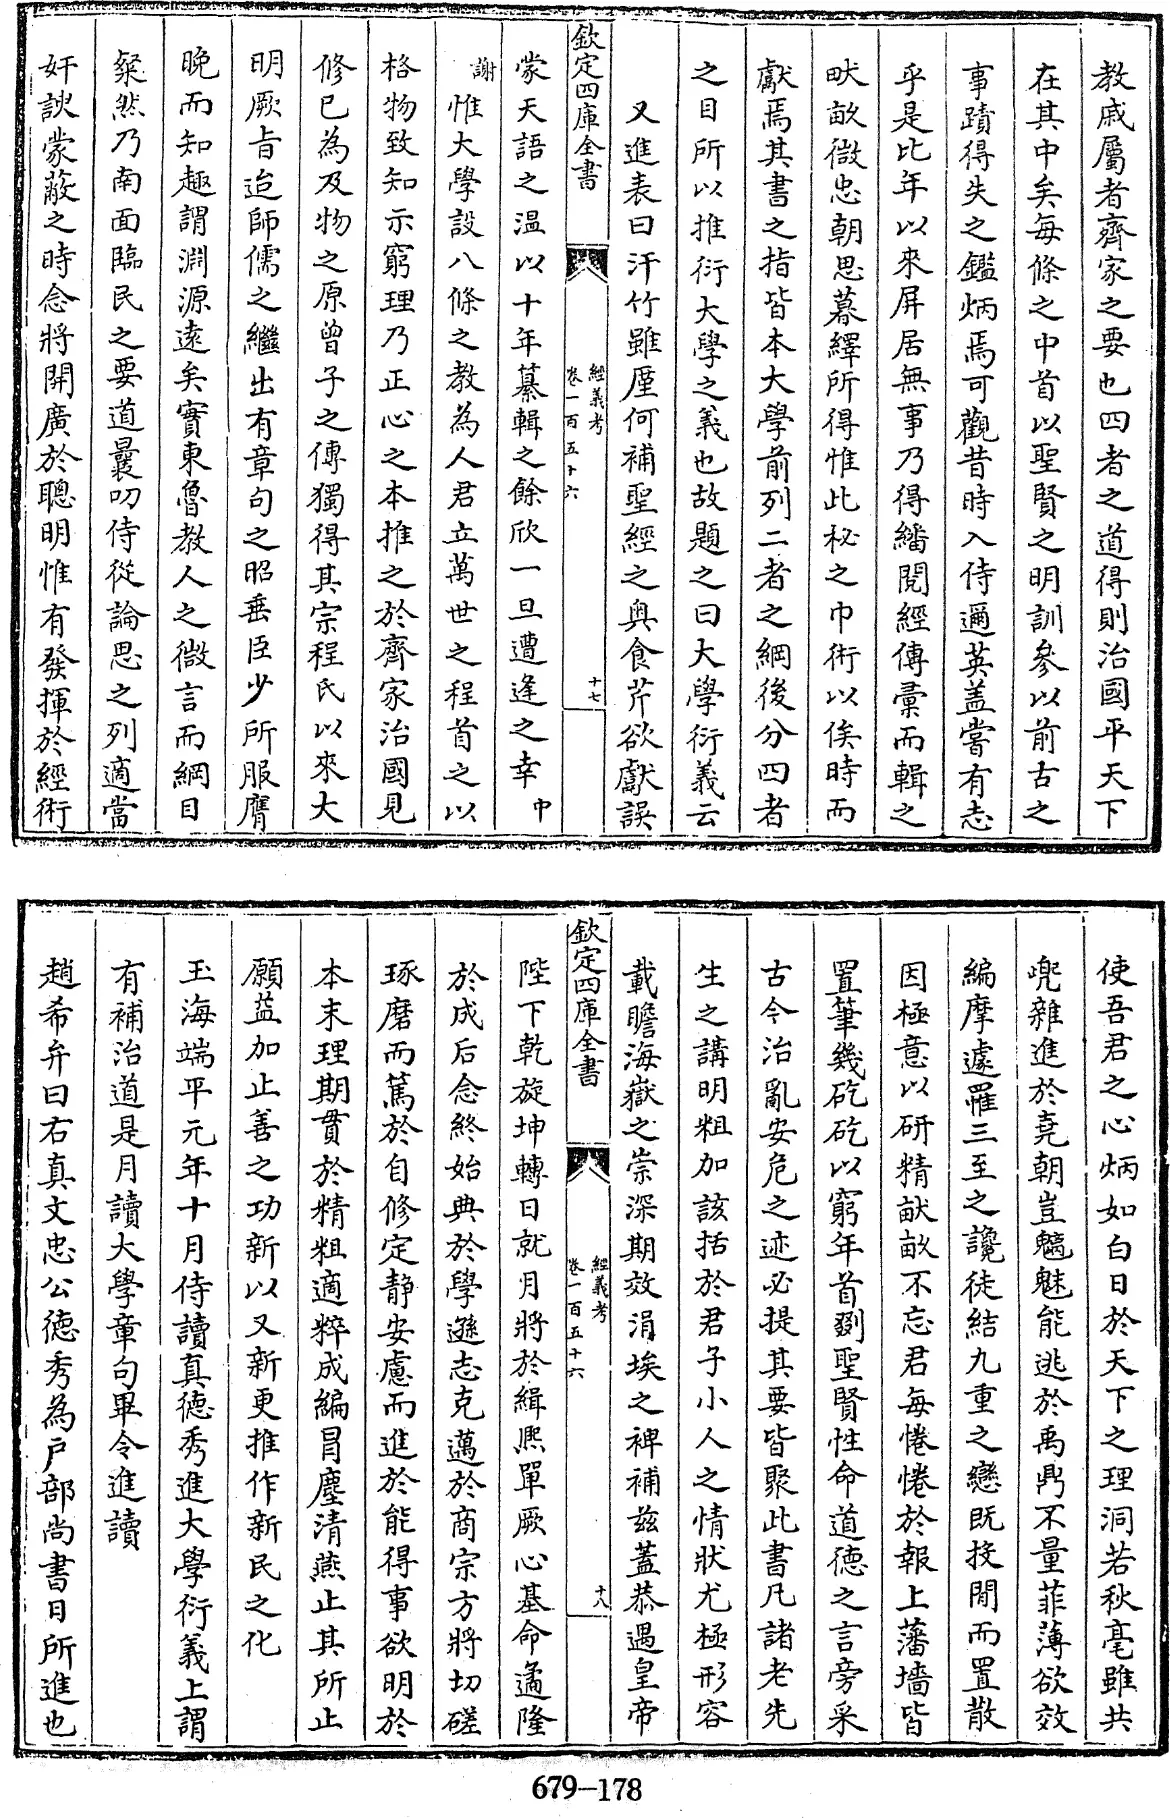 教戚屬者齊家之要也四者之道得則治國平天下
在其中矣每條之中首以聖賢之明訓參以前古之
事蹟得失之鑑炳焉可觀昔時入侍邇英盖嘗有志
乎是比年以來屏居無事乃得繙閱經傳彙而輯之
畎畝微忠朝思暮繹所得惟此秘之巾衍以俟時而
獻焉其書之指皆本大學前列二者之綱後分四者
之目所以推衍大學之義也故題之曰大學衍義云
又進表曰汗竹雖厪何補聖經之奥食芹欲獻誤
欽定四庫全書
經義考
卷一百五十六
十七
蒙天語之温以十年纂輯之餘欣一旦遭逢之幸中
謝惟大學設八條之教為人君立萬世之程首之以
格物致知示窮理乃正心之本推之於齊家治國見
修已為及物之原曾子之傳獨得其宗程氏以來大
明厥旨迨師儒之繼出有章句之昭垂臣少所服膺
晩而知趣謂淵源遠矣實東魯教人之微言而綱目
粲然乃南面臨民之要道曩叨侍從論思之列適當
奸諛蒙蔽之時念將開廣於聰明惟有發揮於經術
使吾君之心炳如白日於天下之理洞若秋毫雖共
兜雜進於堯朝豈魑魅能逃於禹鼎不量菲薄欲效
編摩遽罹三至之讒徒結九重之戀既投閒而置散
因極意以研精畎畝不忘君每惓惓於報上藩墻皆
置筆幾矻矻以窮年首剟聖賢性命道德之言旁采
古今治亂安危之迹必提其要皆聚此書凡諸老先
生之講明粗加該括於君子小人之情狀尤極形容
載瞻海嶽之崇深期效涓埃之裨補兹蓋恭遇皇帝
欽定四庫全書
經義考
卷一百五十六
十八
陛下乾旋坤轉日就月將於緝熈單厥心基命遹隆
於成后念終始典於學遜志克邁於商宗方將切磋
琢磨而篤於自修定静安慮而進於能得事欲明於
本末理期貫於精粗適粹成編冒塵清燕止其所止
願益加止善之功新以又新更推作新民之化
玉海端平元年十月侍讀真德秀進大學衍義上謂
有補治道是月讀大學章句畢令進讀
趙希弁曰右真文忠公德秀為戸部尚書日所進也
679-178